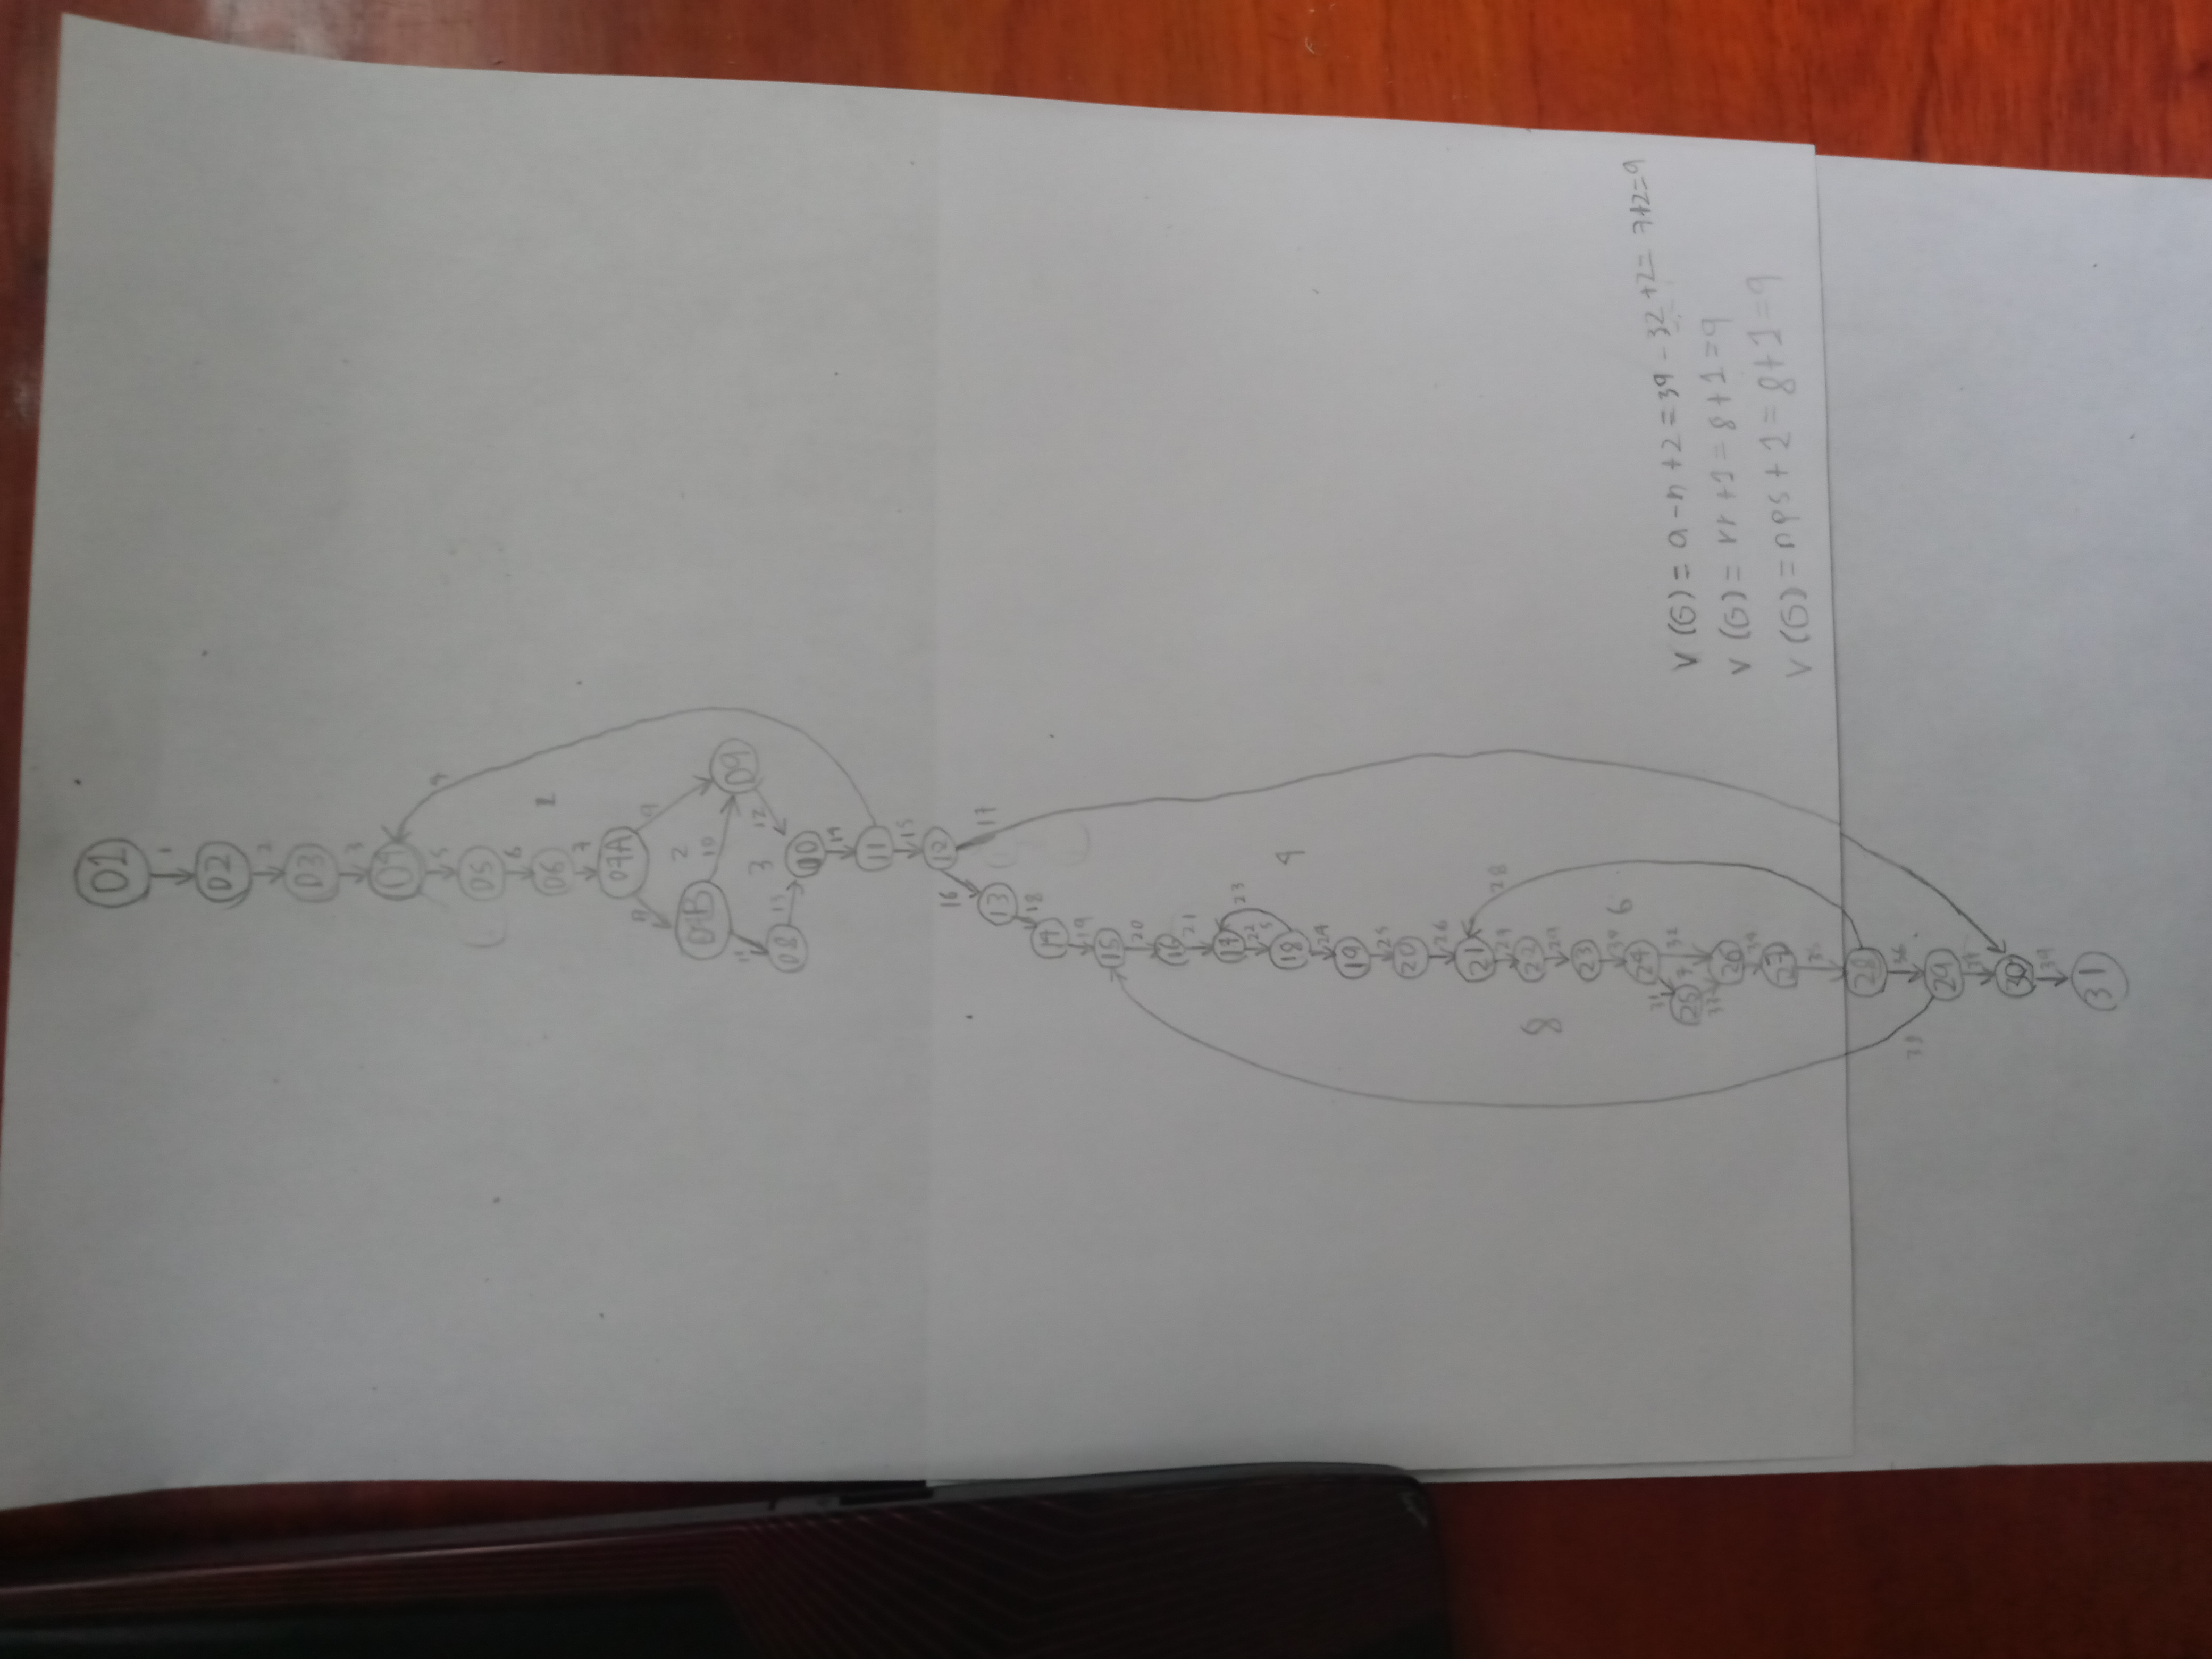 01
1
02
2
03
3
04
4
5
05
6
06
1
7
07A
8
9
2
07B
10
09
11
3
12
08
13
10
14
11
15
12
16
17
13
18
14
19
15
20
16
21
17
23
22
5
18
4
24
19
25
20
26
21
28
27
22
8
29
23
30
6
24
31
32
25
7
33
26
34
27
35
28
36
38
29
37
30
39
31
V(G) = a - n + 2 = 39 - 32 + 2 = 7+2=9
V(G) = rr + 1 = 8 + 1 = 9
V(G) = nps + 1 = 8+1=9